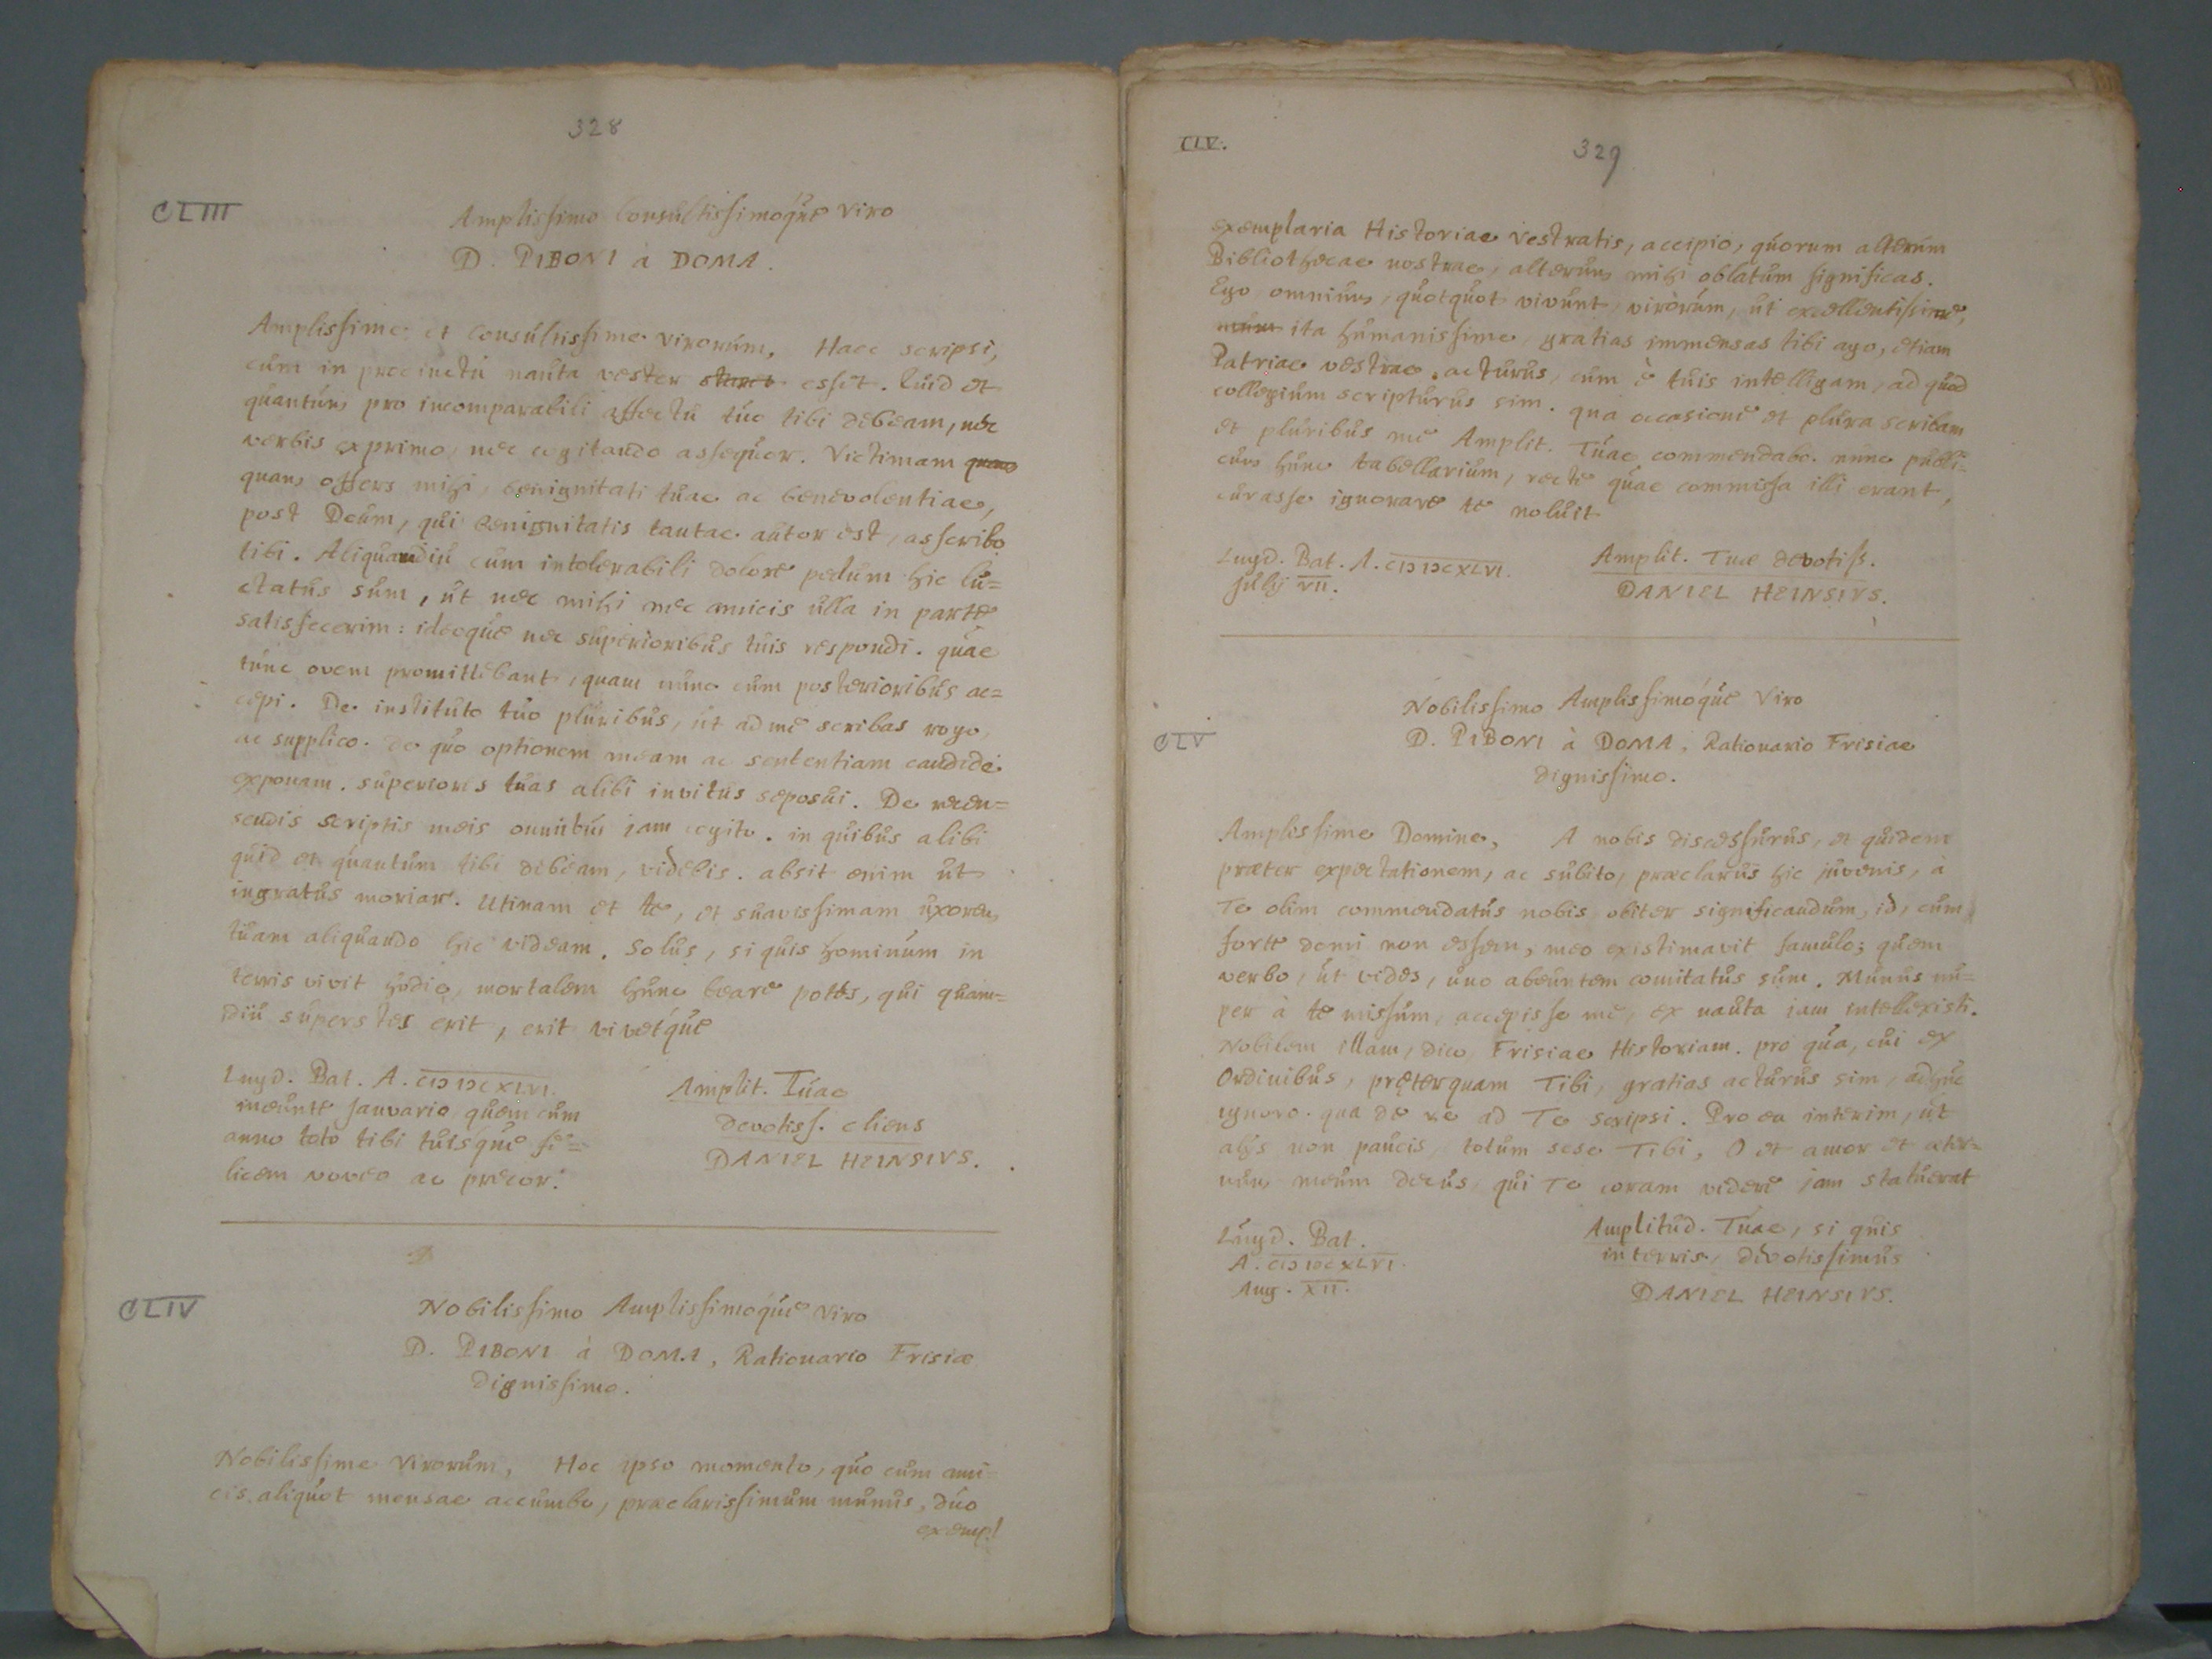 328
CLIII
Amplissimo Consultissimoque Viro
D. PIBONI à DOMA.
Amplissime et Consultissime Virorum. Haec scripsi,
cum in procinctu nauta vester staret esset. Quid et
quantum pro incomparabili affectu tuo tibi debeam, nec
verbis exprimo, nec cogitando assequor. Victimam quam
quam offers mihi, benignitati tuae ac benevolentiae,
post Deum, qui benignitatis tantae autor est, asscribo
tibi. Aliquandiu cum intolerabili dolore pedum hic lu=
ctatus sum, ut nec mihi nec amicis ulla in parte
satisfecerim: ideoque nec superioribus tuis respondi. quae
tunc ovem promittebant, quam nunc cum posterioribus ac=
cepi. De instituto tuo pluribus, ut ad me scribas rogo,
ac supplico. de quo optionem meam ac sententiam candide
exponam. superiores tuas alibi invitus seposui. De recen=
sendis scriptis meis omnibus jam cogito. in quibus alibi
quid et quantum tibi debeam, videbis. absit enim ut
ingratus moriar. Utinam et te, et suavissimam uxorem
tuam aliquando hic videam. Solus, si quis hominum in
terris vivit hodie, mortalem hunc beare potes, qui quam=
diu superstes erit, erit vivetque
Lugd. Bat. A. CIƆ IƆC XLVI.
ineunte Januario, quem cum
anno toto tibi tuisque fe=
licem voveo ac precor.
Amplit. Tuae
devotiss. cliens
DANIEL HEINSIVS.
CLIV
Nobilissimo Amplissimoque Viro
D. PIBONI à DOMA, Rationario Frisiae
dignissimo.
Nobilissime Virorum, Hoc ipso momento, quo cum ami=
cis aliquot mensae accumbo, praeclarissimum munus, duo
exempl
CLIV.
329
exemplaria Historiae Vestratis, accipio, quorum alterum
Bibliothecae nostrae, alterum mihi oblatum significas.
Ego omnium, quotquot vivunt, virorum, ut excellentissime,
mum ita humanissime, gratias immensas tibi ago, etiam
Patriae vestrae acturus, cum è tuis intelligam, ad quod
collegium scripturus sim. qua occasione et plura scribam
et pluribus me Amplit. Tuae commendabo. nunc publi=
cum hunc tabellarium, recte quae commissa illi erant,
curasse ignorare te noluit
Lugd. Bat. A. CIƆ IƆC XLVI.
Julij VII.
Amplit. Tuae devotiss.
DANIEL HEINSIVS.
CLV
Nobilissimo Amplissimoque Viro
D. PIBONI à DOMA, Rationario Frisiae
dignissimo.
Amplissime Domine, A nobis discessurus, et quidem
praeter expectationem, ac subito, praeclarus hic juvenis, à
Te olim commendatus nobis obiter significandum, id, cum
forte domi non essem, meo existimavit famulo; quem
verbo, ut vides, uno abeuntem comitatus sum. Munus nu=
per à te missum, accepisse me, ex nauta jam intellexisti.
Nobilem illam, dico, Frisiae Historiam. pro qua, cui ex
Ordinibus, præterquam Tibi, gratias acturus sim, adhuc
ignoro. qua de re ad Te scripsi. Pro ea interim, ut
alijs non paucis, totum sese Tibi, O et amor et aeter=
num meum decus, qui Te coram videre jam statuerat
Lugd. Bat.
A. CIƆ IƆC XLVI.
Aug. XII.
Amplitud. Tuae, si quis
in terris, devotissimus
DANIEL HEINSIVS.